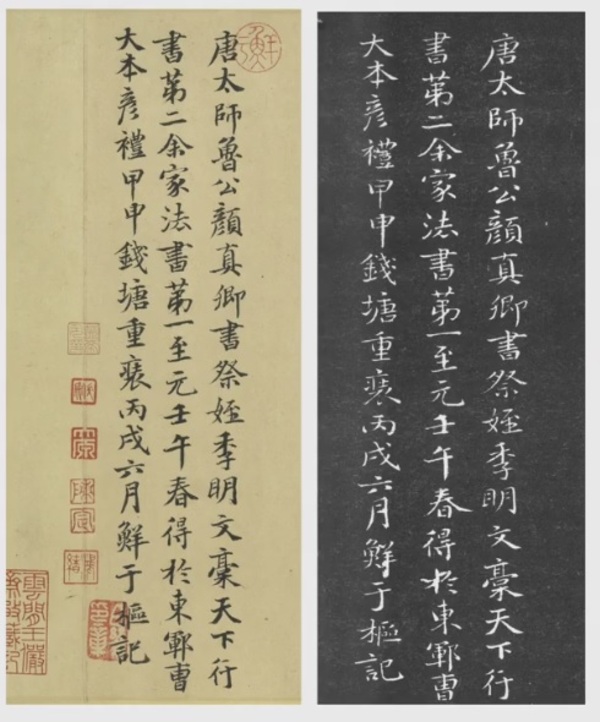 唐太師魯公顏真卿書祭姪季明文稾天下行
書第二余家法書第一至元壬午春得於東鄆曹
大本彦禮甲申錢塘重裝丙戌六月鮮于樞記
唐太師魯公顏真卿書祭姪季明文稾天下行
書第二余家法書第一至元壬午春得於東鄆曹
大本彦禮甲申錢塘重裝丙戌六月鮮于樞記